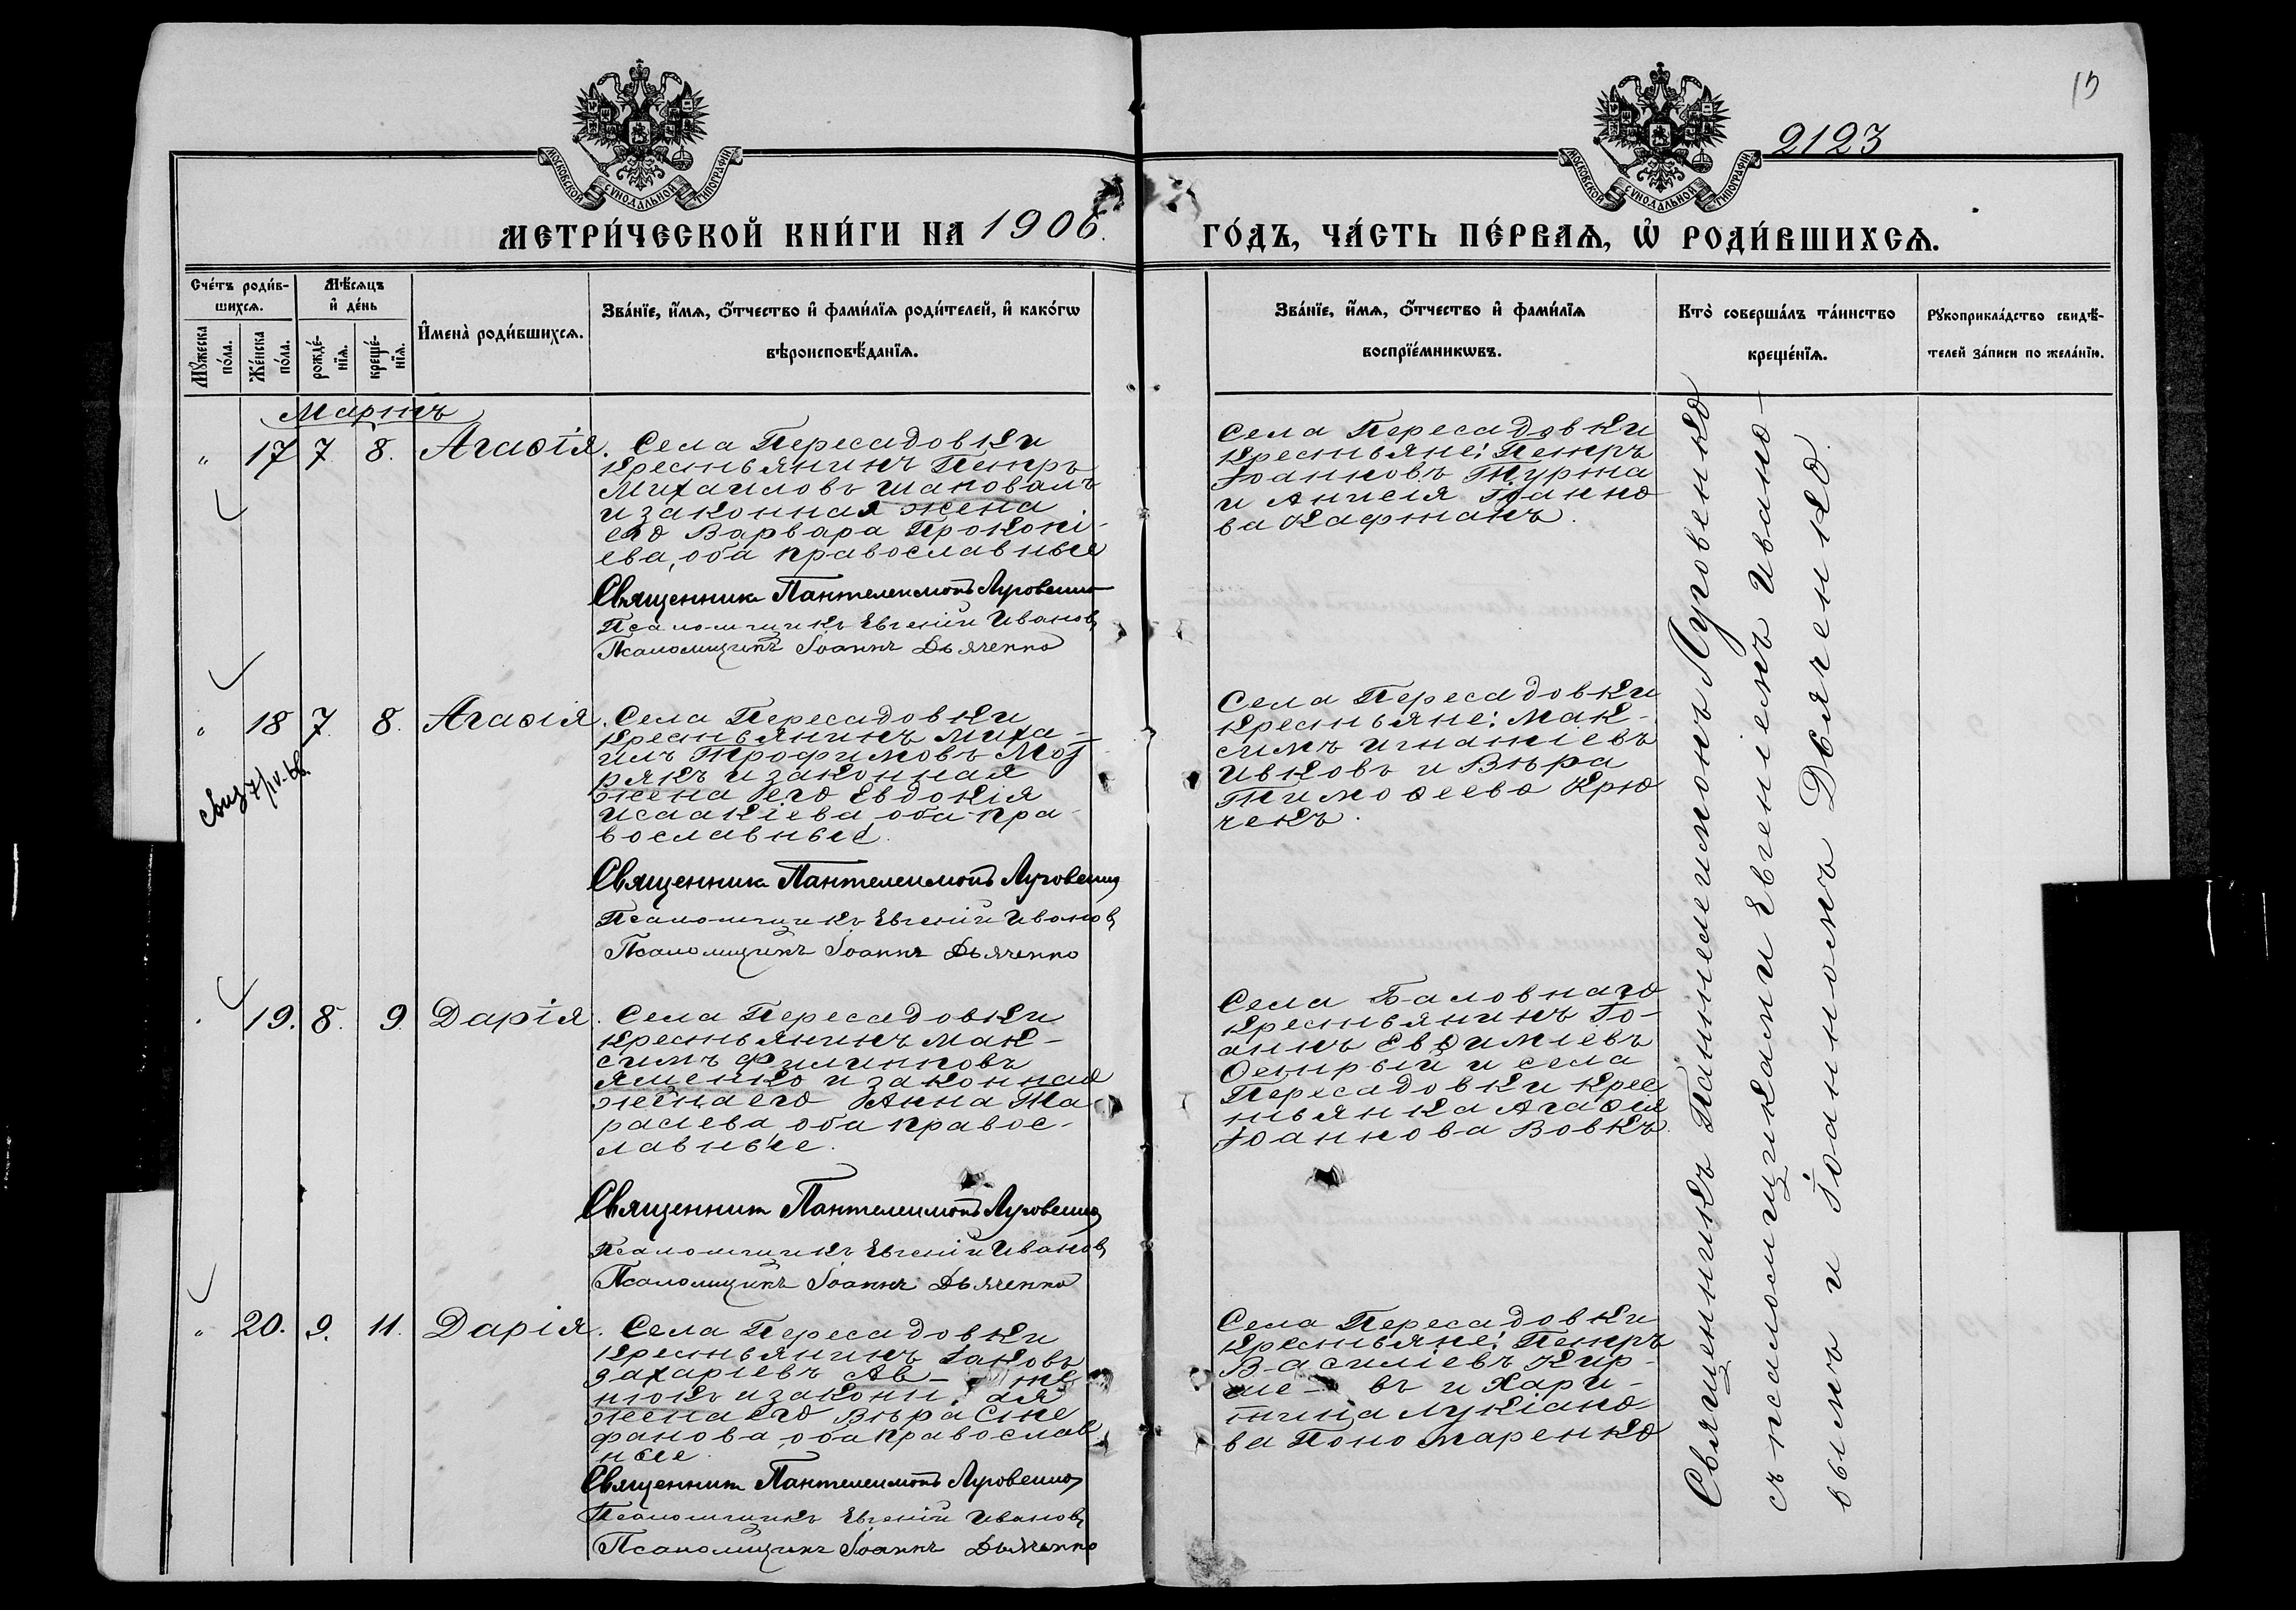 15
2123
МОСКОВСКОЙ СУНОДАЛЬНОЙ ТИПОГРАФІИ
МОСКОВСКОЙ СУНОДАЛЬНОЙ ТИПОГРАФІИ
МЕТРИ́ЧЕСКОЙ КНИ́ГИ НА 1906.
ГО́ДЪ, ЧА́СТЬ ПЕ́РВАѦ, Ѡ҆ РОДИ́ВШИХСѦ.
Сче́тъ роди́в-
шихсѧ.
Мꙋ́жеска
по́ла.
Же́нска
по́ла.
Мѣ́сѧцъ
и҆ де́нь
рожде́-
нїѧ.
креще́-
нїѧ.
И҆мена̀ роди́вшихсѧ.
Зва́нїе, и҆́мѧ, ѻ҆́тчество и҆ фами́лїѧ роди́телей, и҆ како́гѡ
вѣроисповѣ́данїѧ.
Зва́нїе, и҆́мѧ, ѻ҆́тчество и҆ фами́лїѧ
воспрїе́мникѡвъ.
Кто̀ соверша́лъ та́инство
креще́нїѧ.
Рꙋкоприкла́дство свидѣ́-
телей за́писи по жела́нїю.
Мартъ
" 17 7 8. Агаѳія.
Села Пересадовки
крестьянинъ Петръ
Михаиловъ Шаповалъ
и законная жена
его Варвара Прокопі-
ева, оба православные
Священникъ Пантелеимонъ Луговенко
Псаломщикъ Евгеній Ивановъ
Псаломщикъ Іоаннъ Дьяченко
Села Пересадовки
крестьяне: Петръ
Іоанновъ Турта
и Анисія Іоанно
ва Кафтанъ.
" 18 7. 8. Агаѳія.
7/IV-68.
Села Пересадовки
крестьянинъ Миха-
илъ Трофимовъ Моз
рякъ и законная
жена его Евдокія
Исаакіева, оба пра-
вославные.
Священникъ Пантелеимонъ Луговенко
Псаломщикъ Евгеній Ивановъ
Псаломщикъ Іоаннъ Дьяченко
Села Пересадовки
крестьяне: Мак-
симъ Игнатіевъ
Ивковъ и Вѣра
Тимоѳеева Крю
чекъ.
19. 8. 9 Дарія.
Села Пересадовки
крестьянинъ Мак-
симъ Филипповъ
Ященко и законная
жена его Анна Та
расіева, оба правос-
лавные.
Священникъ Пантелеимонъ Луговенко
Псаломщикъ Евгеній Ивановъ
Псаломщикъ Іоаннъ Дьяченко
Села Баловнаго
крестьянинъ Іо-
аннъ Евѳиміевъ
Острый и села
Пересадовки крес
тьянка Агаѳія
Іоаннова Вовкъ.
" 20. 9. 11. Дарія.
Села Пересадовки
крестьянинъ Іаковъ
Захаріевъ
и законн ая
жена его Вѣра Сте
фанова, оба православ
ные.
Священникъ Пантелеимонъ Луговенко
Псаломщикъ Евгеній Ивановъ
Псаломщикъ Іоаннъ Дьяченко
Села Пересадовки
крестьяне: Петръ
Василіевъ Кир-
ше- въ и Хари-
тина Лукіано
ва Пономаренко
Священникъ Пантелеимонъ Луговенко
съ псаломщиками Евгеніемъ Ивано-
вымъ и Іоанномъ Дьяченко.